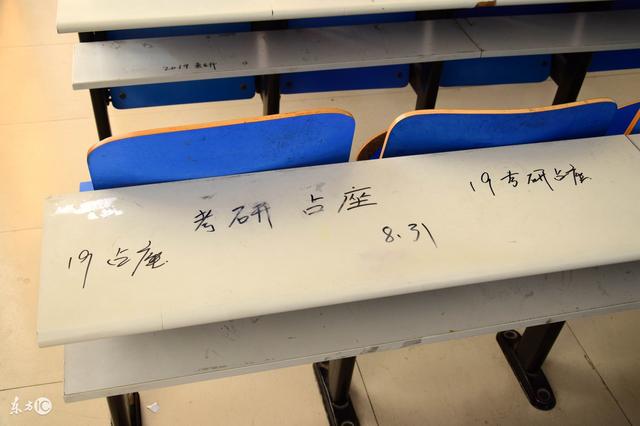 2019 考研
考研 占座
19 考研占座
19 占座
8.31
东方IC